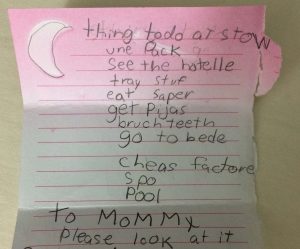 thing todo at stow
une Pack
see the hotelle
tray stuf
eat saper
get Pijas
bruch teeth
go to bede
cheas factore
Spo
Pool
to MOMMY
Please look at it